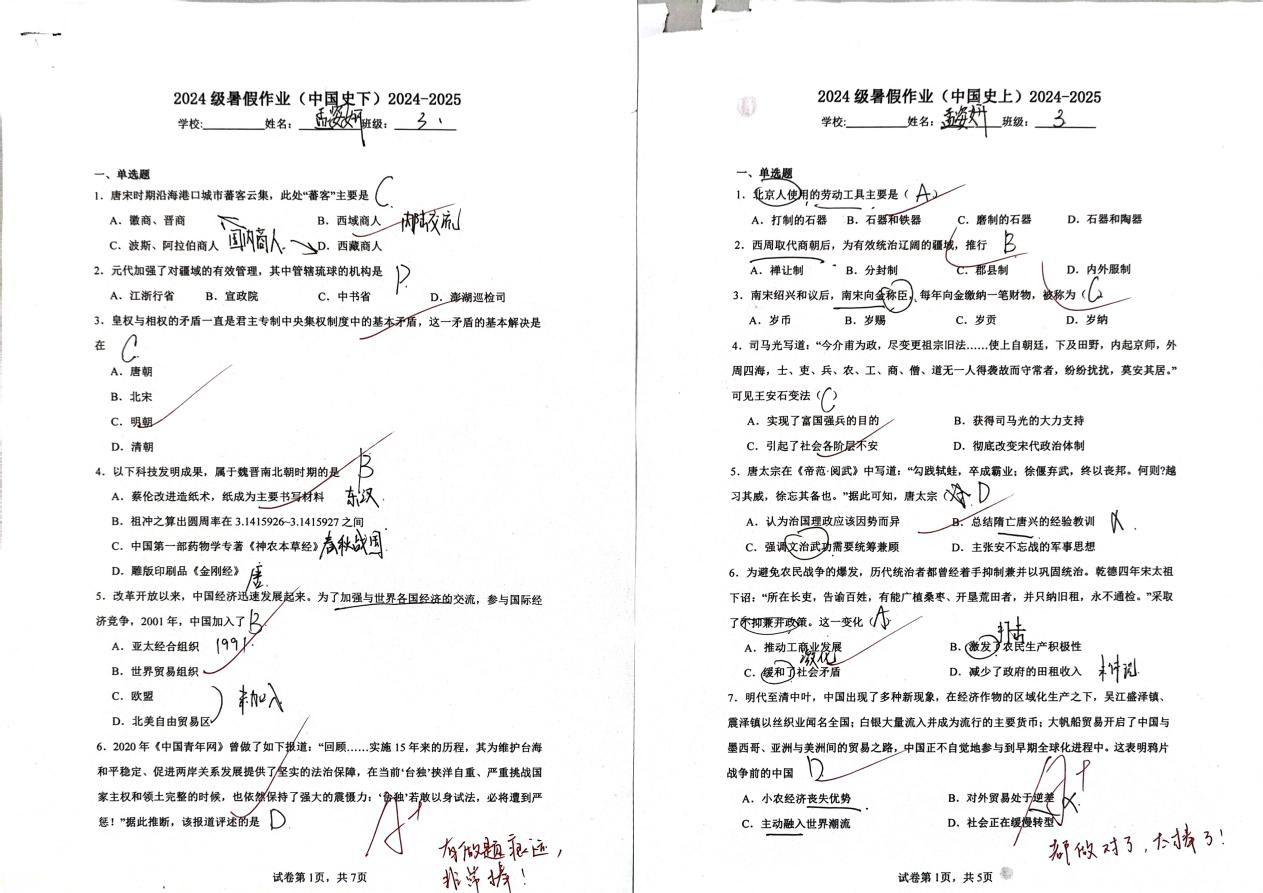 2024 级暑假作业（中国史下）2024-2025
学校:________姓名：孟姿妍班级：3.
一、单选题
1．唐宋时期沿海港口城市蕃客云集，此处“蕃客”主要是 C
A．徽商、晋商 B．西域商人
C．波斯、阿拉伯商人 国内商人 D．西藏商人
2．元代加强了对疆域的有效管理，其中管辖琉球的机构是 D
A．江浙行省 B．宣政院 C．中书省 D．澎湖巡检司
3．皇权与相权的矛盾一直是君主专制中央集权制度中的基本矛盾，这一矛盾的基本解决是
在 C
A．唐朝
B．北宋
C．明朝
D．清朝
4．以下科技发明成果，属于魏晋南北朝时期的是 B
A．蔡伦改进造纸术，纸成为主要书写材料 东汉
B．祖冲之算出圆周率在 3.1415926~3.1415927 之间
C．中国第一部药物学专著《神农本草经》春秋战国
D．雕版印刷品《金刚经》 唐
5．改革开放以来，中国经济迅速发展起来。为了加强与世界各国经济的交流，参与国际经
济竞争，2001 年，中国加入了 B
A．亚太经合组织 1991
B．世界贸易组织
C．欧盟
D．北美自由贸易区 未加入
6．2020 年《中国青年网》曾做了如下报道：“回顾……实施 15 年来的历程，其为维护台海
和平稳定、促进两岸关系发展提供了坚实的法治保障，在当前‘台独’挟洋自重、严重挑战国
家主权和领土完整的时候，也依然保持了强大的震慑力：‘台独’若敢以身试法，必将遭到严
惩！”据此推断，该报道评述的是 D
A+
有做题痕迹，
非常棒！
试卷第 1页，共 7页
2024 级暑假作业（中国史上）2024-2025
学校:________姓名：孟姿妍 班级：3
一、单选题
1．北京人使用的劳动工具主要是（ A ）
A．打制的石器 B．石器和铁器 C．磨制的石器 D．石器和陶器
2．西周取代商朝后，为有效统治辽阔的疆域，推行 B
A．禅让制 B．分封制 C．郡县制 D．内外服制
3．南宋绍兴和议后，南宋向金称臣，每年向金缴纳一笔财物，被称为（ C
A．岁币 B．岁赐 C．岁贡 D．岁纳
4．司马光写道：“今介甫为政，尽变更祖宗旧法……使上自朝廷，下及田野，内起京师，外
周四海，士、吏、兵、农、工、商、僧、道无一人得袭故而守常者，纷纷扰扰，莫安其居。”
可见王安石变法（ C ）
A．实现了富国强兵的目的 B．获得司马光的大力支持
C．引起了社会各阶层不安 D．彻底改变宋代政治体制
5．唐太宗在《帝范·阅武》中写道：“勾践轼蛙，卒成霸业；徐偃弃武，终以丧邦。何则?越
习其威，徐忘其备也。”据此可知，唐太宗（ D
A．认为治国理政应该因势而异 B．总结隋亡唐兴的经验教训 X.
C．强调文治武功需要统筹兼顾 D．主张安不忘战的军事思想
6．为避免农民战争的爆发，历代统治者都曾经着手抑制兼并以巩固统治。乾德四年宋太祖
下诏：“所在长吏，告谕百姓，有能广植桑枣、开垦荒田者，并只纳旧租，永不通检。”采取
了不抑兼并政策。这一变化（ A ）
打击
A．推动工商业发展 B．激发了农民生产积极性
激化
C．缓和了社会矛盾 D．减少了政府的田租收入 未体现
7．明代至清中叶，中国出现了多种新现象，在经济作物的区域化生产之下，吴江盛泽镇、
震泽镇以丝织业闻名全国；白银大量流入并成为流行的主要货币；大帆船贸易开启了中国与
墨西哥、亚洲与美洲间的贸易之路，中国正不自觉地参与到早期全球化进程中。这表明鸦片
战争前的中国 D
A．小农经济丧失优势 B．对外贸易处于逆差 X
C．主动融入世界潮流 D．社会正在缓慢转型
A+
都做对了，太棒了！
试卷第 1页，共 5页